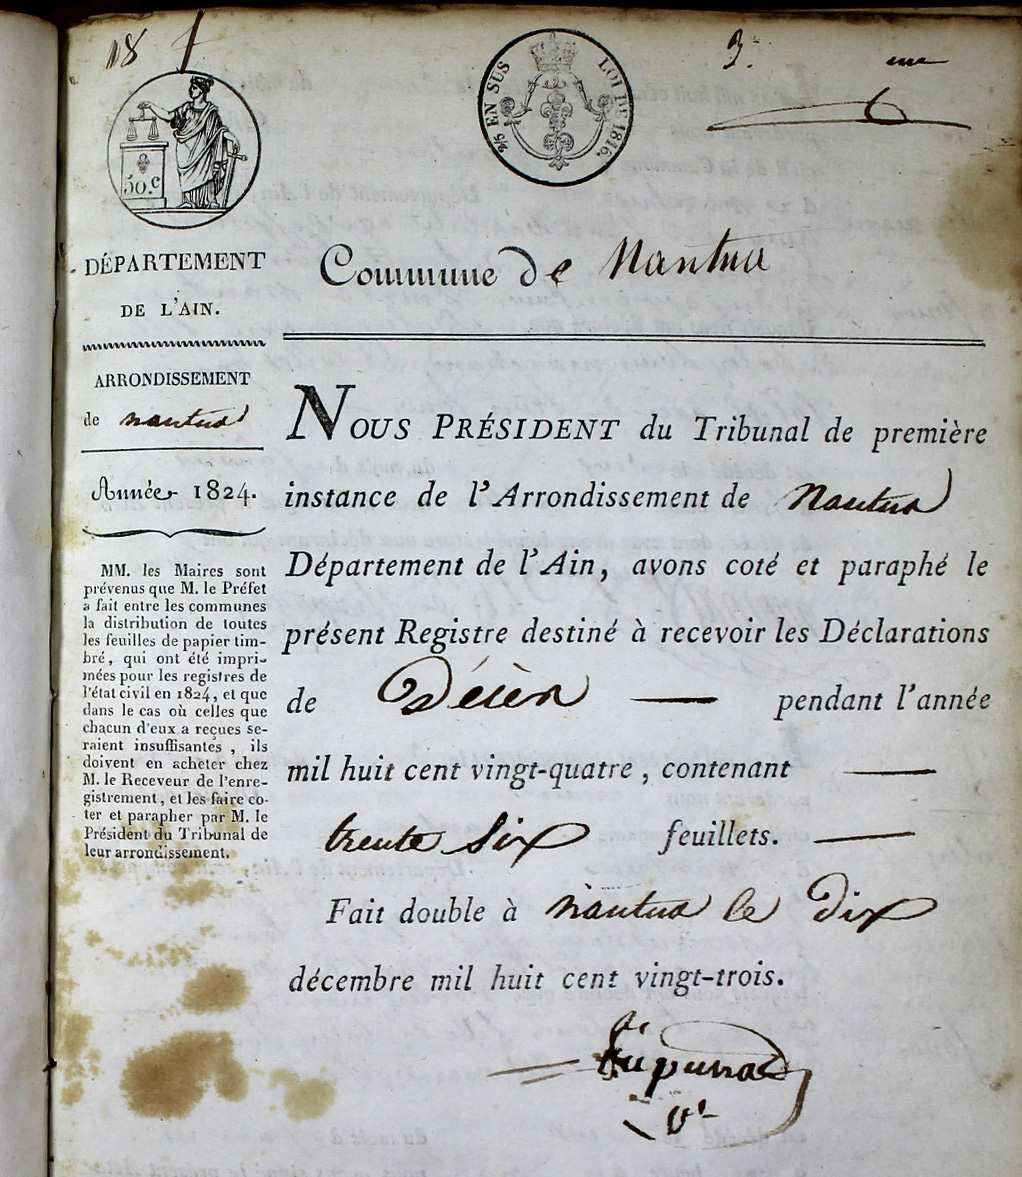 18
3.
me
50.c
5/6 EN SUS
LOI DE 1816.
DÉPARTEMENT
DE L'AIN.
ARRONDISSEMENT
de nantua
Année 1824.
MM. les Maires sont
prévenus que M. le Préfet
a fait entre les communes
la distribution de toutes
les feuilles de papier tim-
bré, qui ont été impri-
mées pour les registres de
l'état civil en 1824, et que
dans le cas où celles que
chacun d'eux a reçues se-
raient insuffisantes, ils
doivent en acheter chez
M. le Receveur de l'enre-
gistrement, et les faire co-
ter et parapher par M. le
Président du Tribunal de
leur arrondissement.
Commune de Nantua
NOUS PRÉSIDENT du Tribunal de première
instance de l'Arrondissement de Nantua
Département de l'Ain, avons coté et paraphé le
présent Registre destiné à recevoir les Déclarations
de Décès pendant l'année
mil huit cent vingt-quatre, contenant
trente Six feuillets.
Fait double à nantua le Dix
décembre mil huit cent vingt-trois.